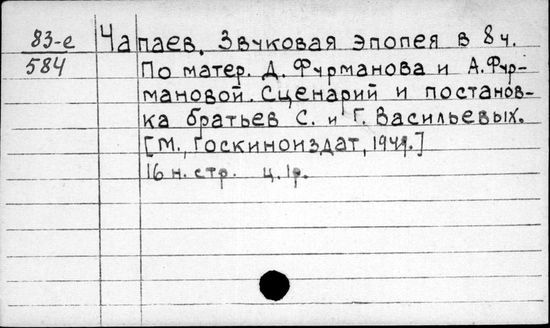 83-е Чапаев. Звуковая эпопея в 8 ч.
584 По матер. Д. Фурманова и А. Фур-
мановой. Сценарий и постанов-
ка братьев С. и Г. Васильевых.
[М., Госкиноиздат,]
16 н. стр. ц. 1р.